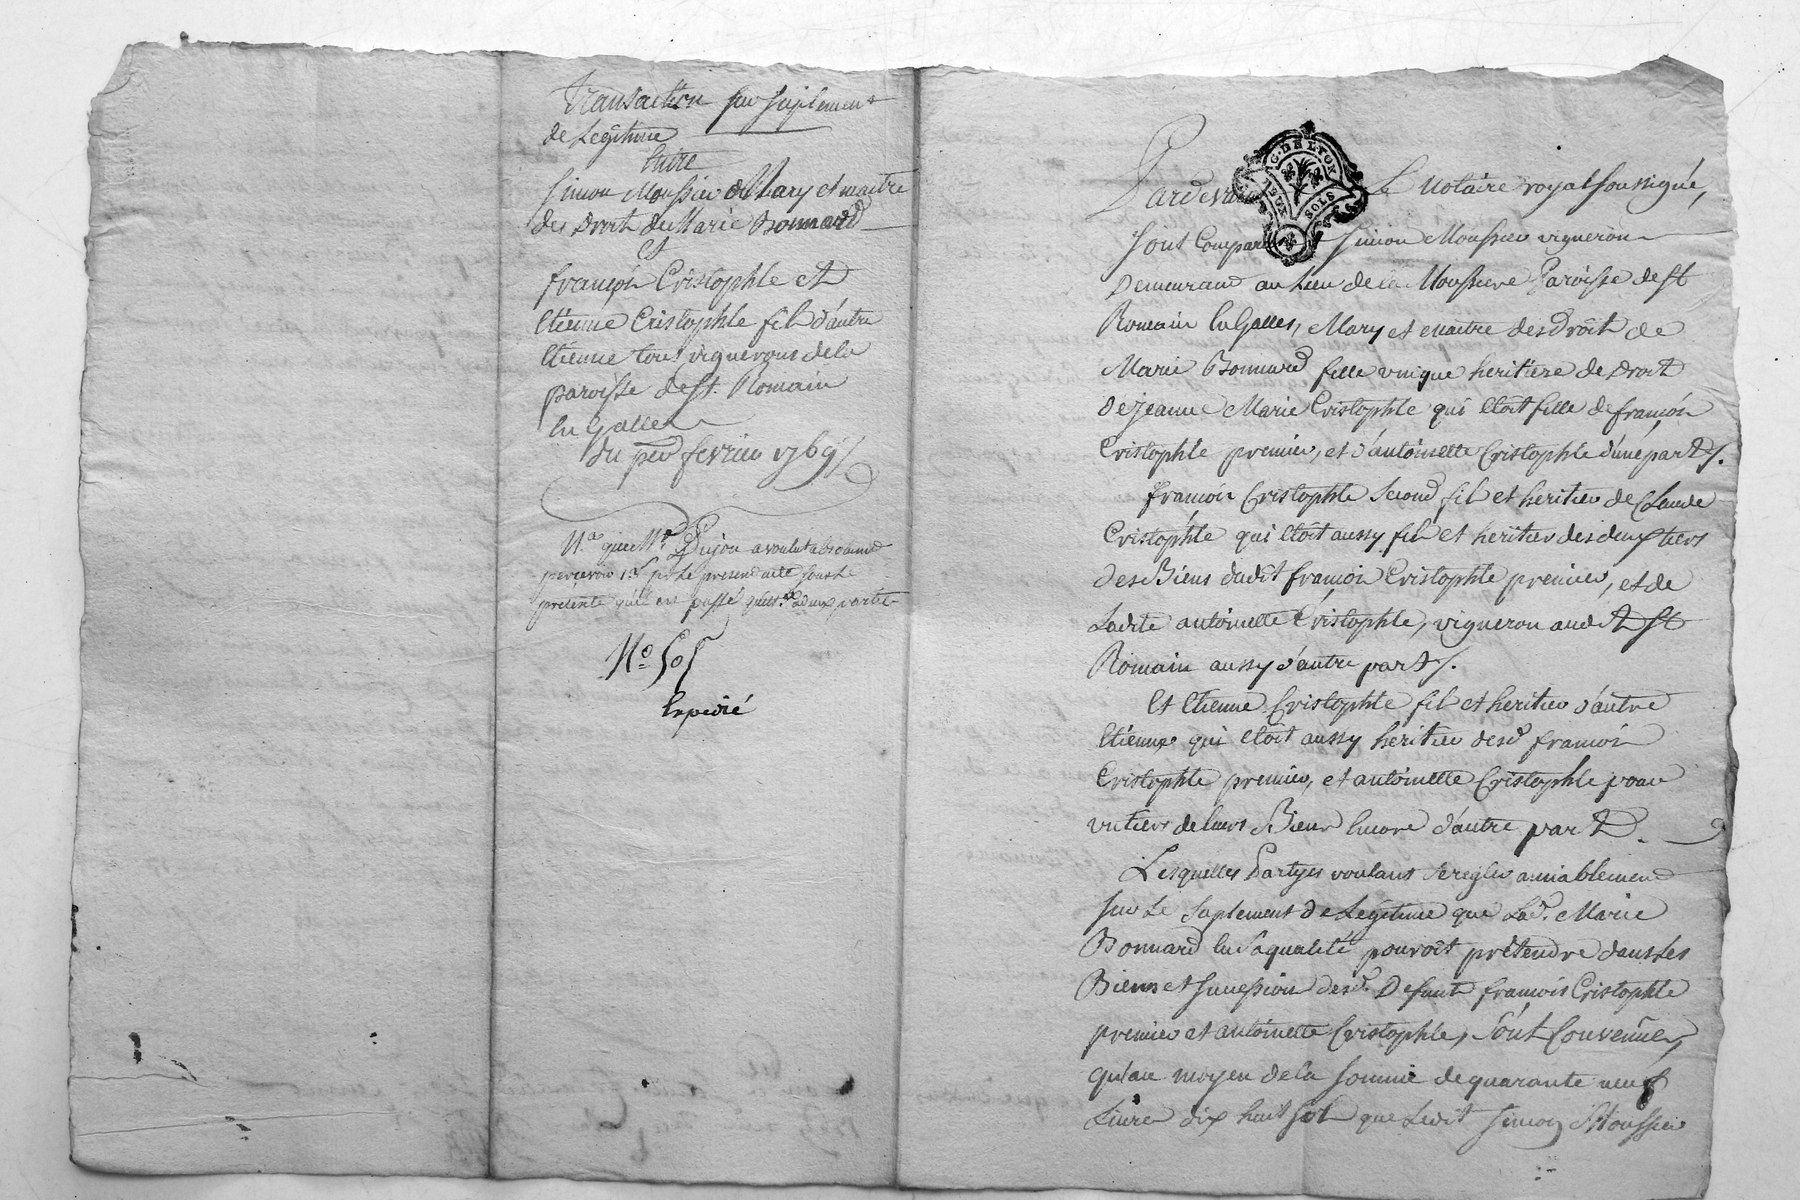 Transaction sur suplement
de Legitime
Entre
Simon Moussier Mary et maitre
des Droit de Marie Bonnard
Et
françois Cristophle et
Etienne Cristophle fils d'autre
Etienne tous vignerons de la
paroisse de st. Romain
en Galles
du per fevrier 1769
Na. que Mr. Dujou a voulut absolument
percevoir pr Le present acte sous Le
pretexte qu'il est passé
No. 505
Expedié
G. DE LYON
DEUX SOLS
Pardevant Le Notaire royal soussigné,
sont Comparu Simon Moussier vigneron
Demeurant au Lieu de la Moussiere Paroisse de st
Romain en Galles, Mary et maitre des Droit de
Marie Bonnard fille unique heritiere de Droit
de jeanne Marie Cristophle qui étoit fille de françois
Cristophle premier, et d'antoinette Cristophle d'une part.
françois Cristophle second fils et heritier de Claude
Cristophle qui étoit aussy fils et heritier des deux tiers
des Biens dudit françois Cristophle premier, et de
Ladite antoinette Cristophle, vigneron audit st
Romain aussy d'autre part.
Et Etienne Cristophle fils et heritier d'autre
Etienne qui étoit aussy heritier desd. françois
Cristophle premier, et antoinette Cristophle pour
un tiers de leurs Biens Encore d'autre part.
Lesquelles Partyes voulant se regler amiablement
sur Le suplement de Legitime que Lad. Marie
Bonnard en sa qualité pouroit prétendre dans Les
Biens et succession desd. Defunts françois Cristophle
premier et antoinette Cristophle, sont Convenües,
qu'au moyen de la somme de quarante neuf
Livres dix huit sols que Ledit Simon Moussier